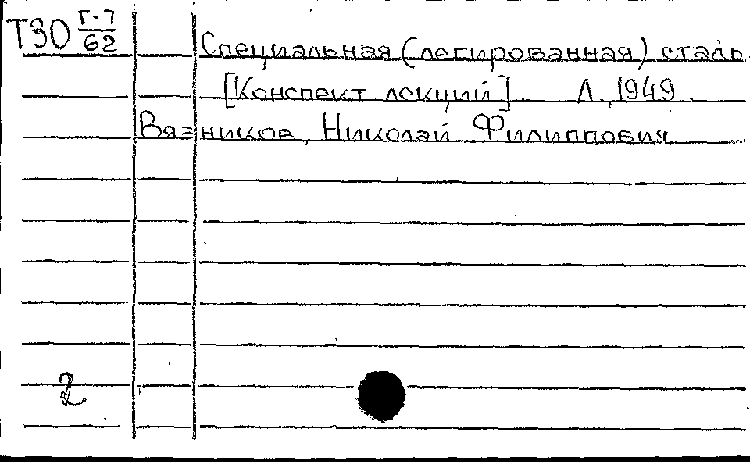 Т30 Г-7/62
Специальная (легированная) сталь
[Конспект лекций] Л., 1949
Вязников, Николай Филиппович
2